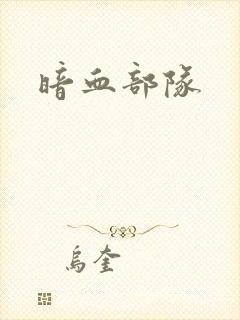 暗血部隊
烏奎